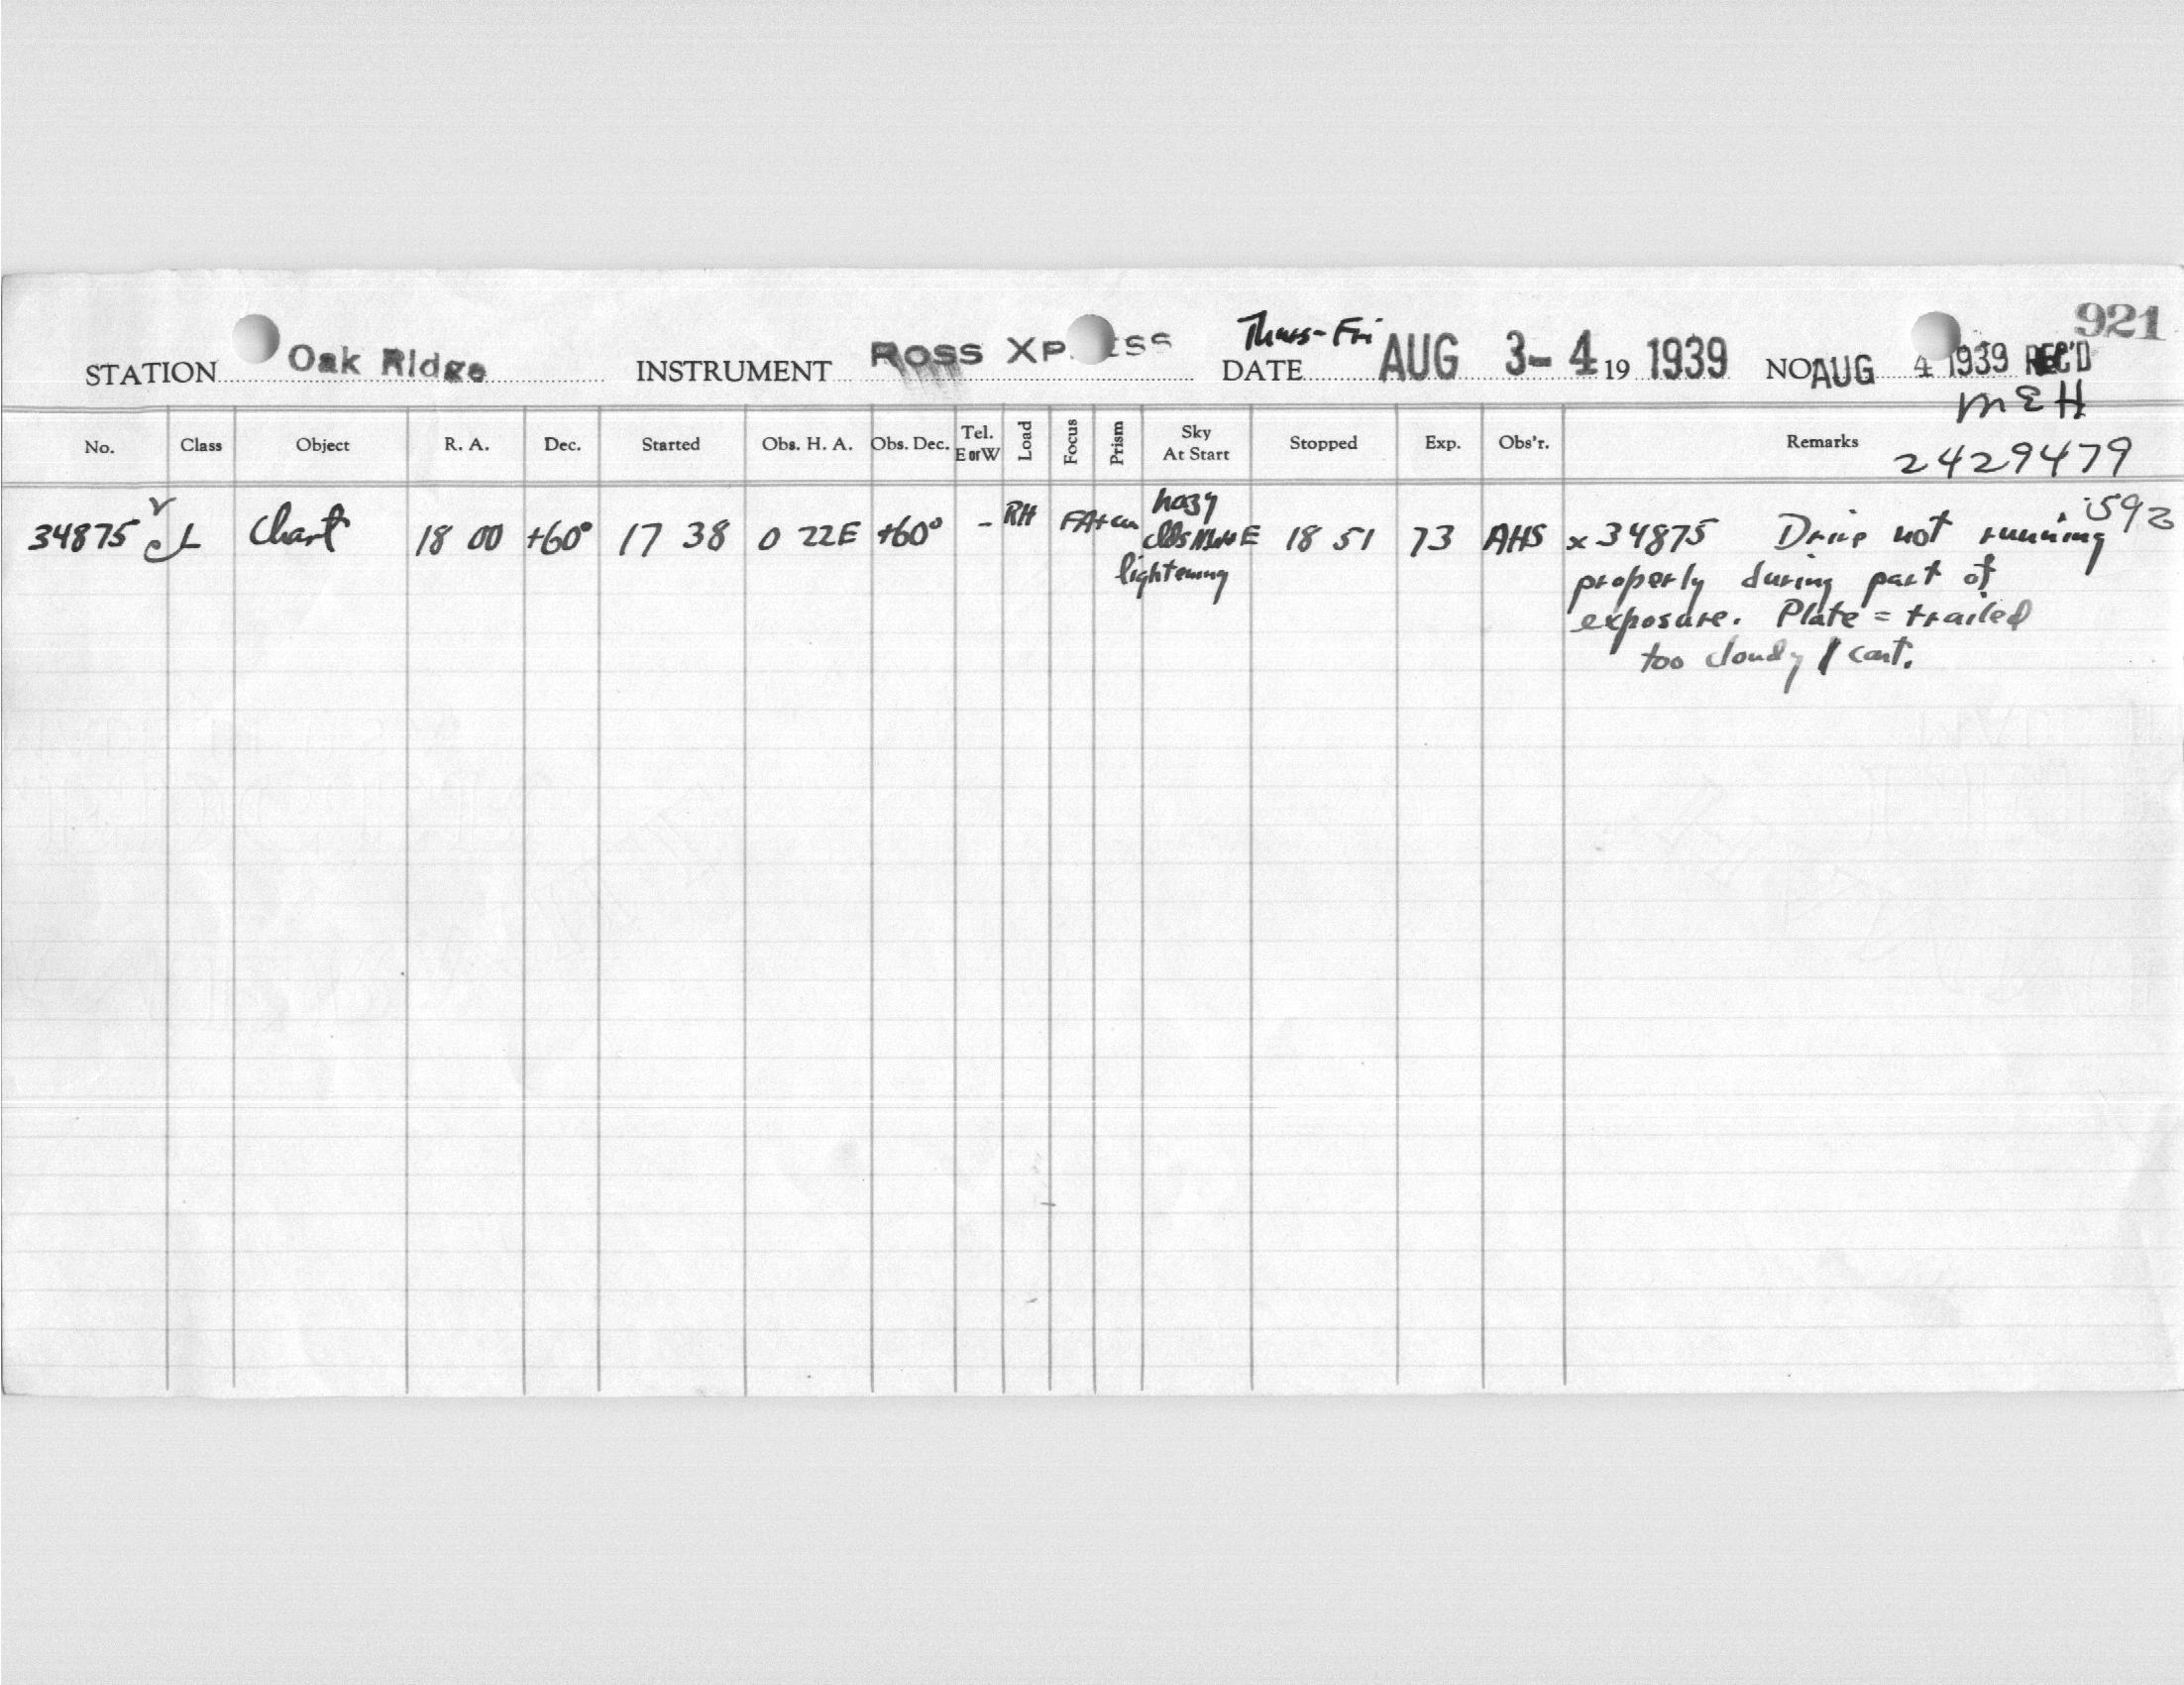 921
Thurs-Fri
STATION Oak Ridge INSTRUMENT ROSS XP ESS DATE AUG 3-4 19 1939 NO AUG 4 1939 REC'D
MEH
No. Class Object R. A. Dec. Started Obs. H. A. Obs. Dec. Tel. E or W Load Focus Prism Sky At Start Stopped Exp. Obs'r. Remarks 2429479
34875 L Chart 18 00 +60° 17 38 0 22E +60° - RH hazy E 18 51 73 AHS x34875 Drive not running .592
lightening properly during part of
exposure. Plate = trailed
too cloudy / cont.